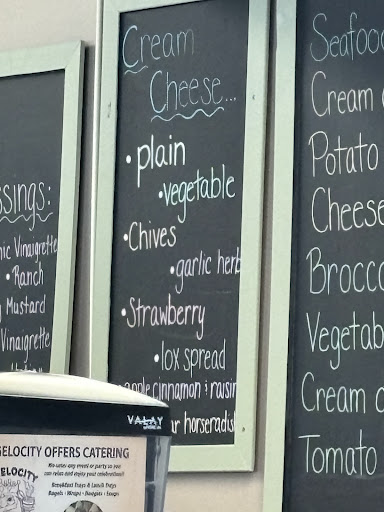 ssings:
nic Vinaigrette
• Ranch
Mustard
Vinaigrette
Cream
Cheese...
• plain
• vegetable
• Chives
• garlic herb
• Strawberry
• lox spread
apple cinnamon & raisin
ur horseradis
Seafoo
Cream o
Potato
Cheese
Brocco
Vegetab
Cream o
Tomato
VALAY
GELOCITY OFFERS CATERING
We cater any event or party so you
can relax and enjoy your celebration!!
Breakfast Trays & Lunch Trays
Bagels • Wraps • Nuggets • Soups
ELOCITY